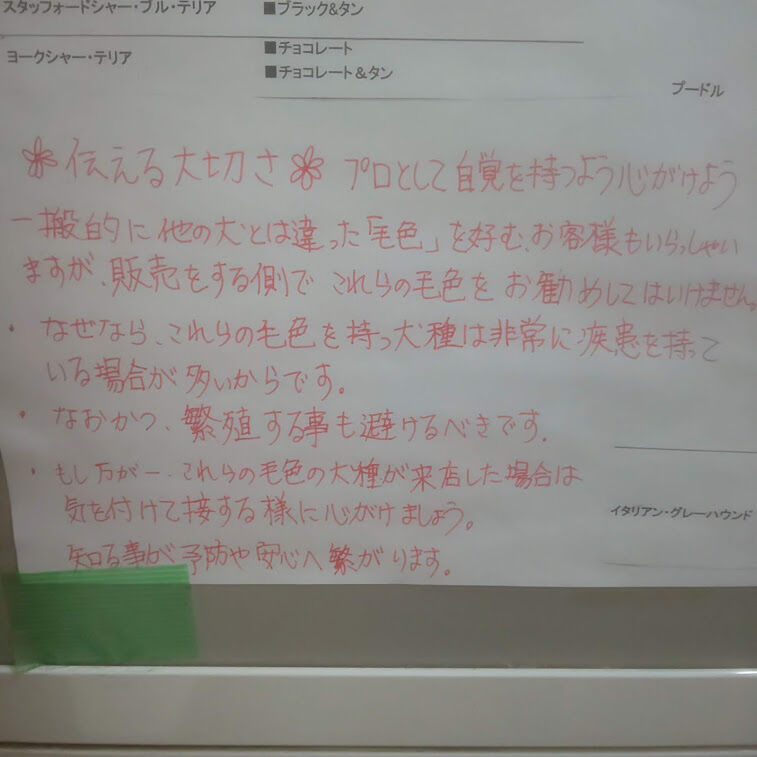 スタッフォードシャー・ブル・テリア ■ブラック&タン
ヨークシャー・テリア ■チョコレート
■チョコレート&タン
プードル
伝える大切さ プロとして自覚を持つよう心がけよう
一般的に他の犬とは違った「毛色」を好む、お客様もいらっしゃい
ますが、販売をする側で これらの毛色を お勧めしてはいけません。
・なぜなら、これらの毛色を持つ犬種は非常に疾患を持って
いる場合が多いからです。
・なおかつ、繁殖する事も避けるべきです.
・もし万が一、これらの毛色の犬種が来店した場合は
気を付けて接する様に心がけましょう。
知る事が予防や安心へ繋がります。
イタリアン・グレーハウンド